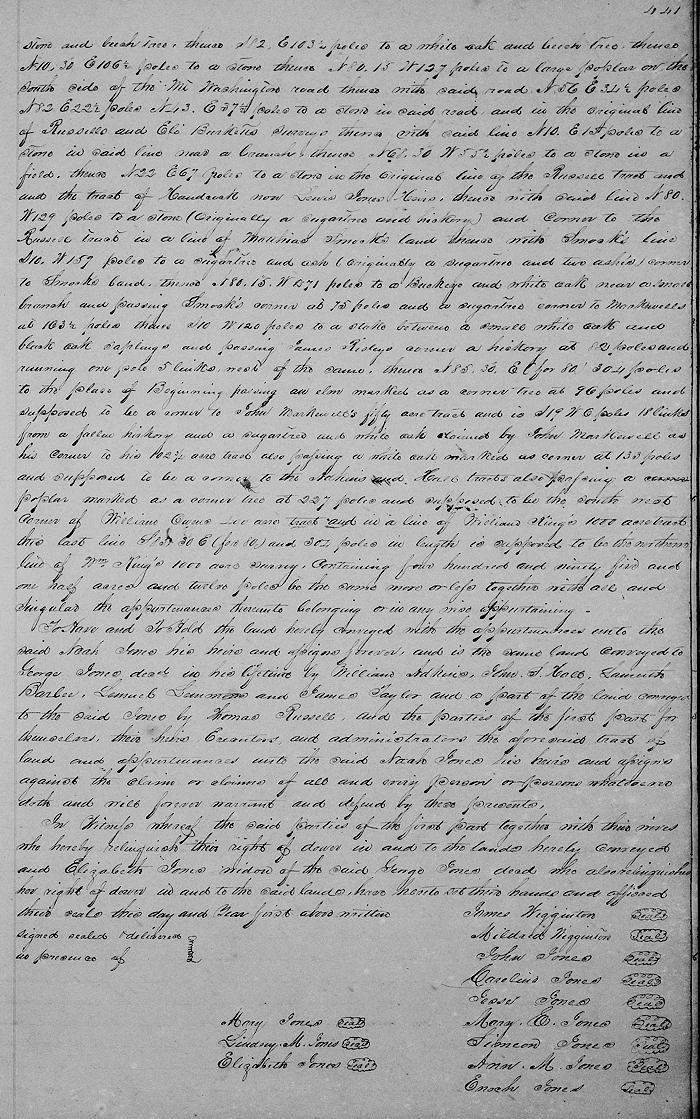 441
stone and beech tree, thence S82, E103½ poles to a white oak and beech tree, thence
N10,30 E106½ poles to a stone thence N80.15 W127 poles to a large poplar on the
South side of the Mt Washington road thence with said road N56 E34½ poles
N82 E22½ poles N43. E37½ poles to a stone in said road, and in the original line
of Russells and Eli Burketts Surveys thence with said line N10. E 17 poles to a
stone in said line near a branch, thence N61.30 W55½ poles to a stone in a
field, thence N22 E67 poles to a stone in the original line of the Russell tract and
and the tract of now Lewis Jones Heirs, thence with said line N80.
W129 poles to a stone (Originally a sugartree and hickory) and corner to the
Russell tract in a line of Matthias Smocks land thence with Smock's line
S10, W159 poles to a sugartree and ash (Originally a sugartree and two ashes) corner
to Smocks land, thence N80.15. W271 poles to a Buckeye and white oak near a small
branch and passing Smock's corner at 75 poles and a sugartree corner to Markwells
at 163½ poles thence S10 W120 poles to a stake between a small white oak and
black oak saplings and passing James Risleys corner a hickory at 82 poles and
running one pole 5 links west of the same, thence N85.30. E (for 80) 304 poles
to the place of Beginning passing an elm marked as a corner tree at 96 poles and
supposed to be a corner to John Markwell's fifty acre tract and is S19 W6 poles 18 links
from a fallen hickory and a sugartree and white oak claimed by John Markwell as
his corner to his 102½ acre tract also passing a white oak marked as corner at 133 poles
and supposed to be a corner to the Adkins and Hall tracts also passing a corner
poplar marked as a corner tree at 227 poles and supposed to be the south west
corner of William acre tract and in a line of William King's 1000 acre tract
this last line 30 E (for 80) and 304 poles in length is supposed to be the northern
line of Wm King's 1000 acre survey. Containing four hundred and ninety five and
one half acres and twelve poles be the same more or less together with all and
singular the appurtenances thereunto belonging or in any wise appertaining -
To Have and To Hold the land hereby conveyed with the appurtenances unto the
said Noah Jones his heirs and assigns forever, and is the same land conveyed to
George Jones, decd in his lifetime by William Adkins, John S. Hall,
Barbee, Lemuel and James Taylor and a part of the land conveyed
to the said Jones by Thomas Russell, and the parties of the first part for
themselves, their heirs Executors, and administrators the aforesaid tract of
land and appurtenances unto the said Noah Jones his heirs and assigns
against the claim or claims of all and every person or persons whatsoever
doth and will forever warrant and defend by these presents,
In Witness whereof the said parties of the first part together with their wives
who hereby relinquish their right of dower in and to the lands hereby conveyed
and Elizabeth Jones widow of the said George Jones decd who also relinquishes
her right of dower in and to the said lands, have hereto set their hands and affixed
their seals this day and Year first above written
signed sealed & delivered
in presence of
James Wigginton Seal
Mildred Wigginton Seal
John Jones Seal
Caroline Jones Seal
Jesse Jones Seal
Mary. E. Jones Seal
Simeon Jones Seal
Ann. M. Jones Seal
Enoch Jones Seal
Mary Jones Seal
Lindsey M. Jones Seal
Elizabeth Jones Seal